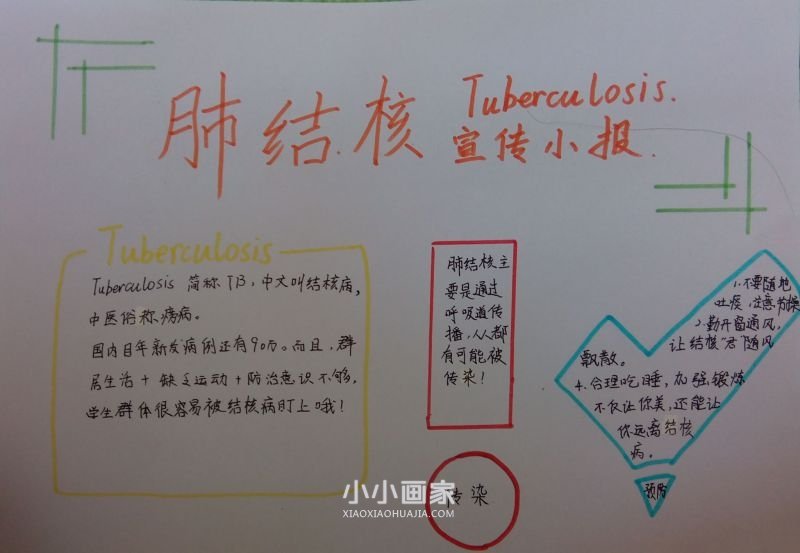 肺结核
Tuberculosis.
宣传小报.
Tuberculosis
Tuberculosis 简称TB,中文叫结核病,
中医俗称痨病。
国内目年新发病例还有90万。而且,群
居生活+缺乏运动+防治意识不够,
学生群体很容易被结核病盯上哦!
肺结核主
要是通过
呼吸道传
播,人人都
有可能被
传染!
传染
1.不要随地
吐痰,注意
2.勤开窗通风,
让结核“君”随风
飘散。
4.合理吃睡,加强锻炼
不仅让你美,还能让
你远离结核
病。
预防
小小画家
XIAOXIAOHUAJIA.COM